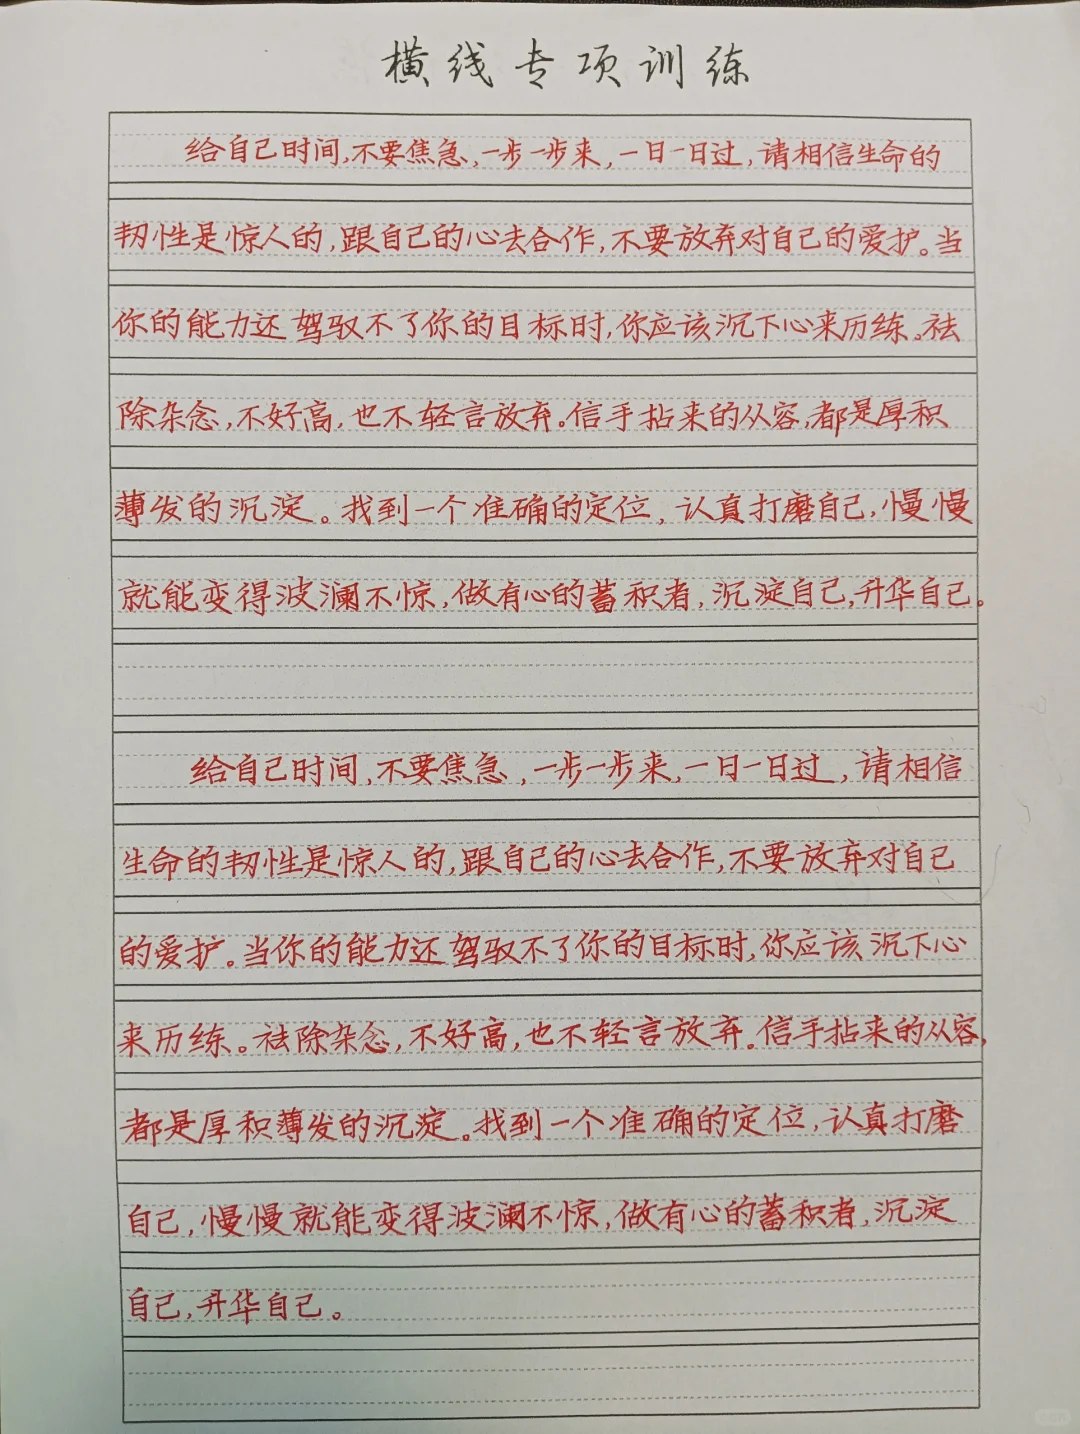 横线专项训练
给自己时间,不要焦急,一步一步来,一日一日过,请相信生命的
韧性是惊人的,跟自己的心去合作,不要放弃对自己的爱护。当
你的能力还驾驭不了你的目标时,你应该沉下心来历练。祛
除杂念,不好高,也不轻言放弃。信手拈来的从容,都是厚积
薄发的沉淀。找到一个准确的定位,认真打磨自己,慢慢
就能变得波澜不惊,做有心的蓄积者,沉淀自己,升华自己。
给自己时间,不要焦急,一步一步来,一日一日过,请相信
生命的韧性是惊人的,跟自己的心去合作,不要放弃对自己
的爱护。当你的能力还驾驭不了你的目标时,你应该沉下心
来历练。祛除杂念,不好高,也不轻言放弃。信手拈来的从容,
都是厚积薄发的沉淀。找到一个准确的定位,认真打磨
自己,慢慢就能变得波澜不惊,做有心的蓄积者,沉淀
自己,升华自己。